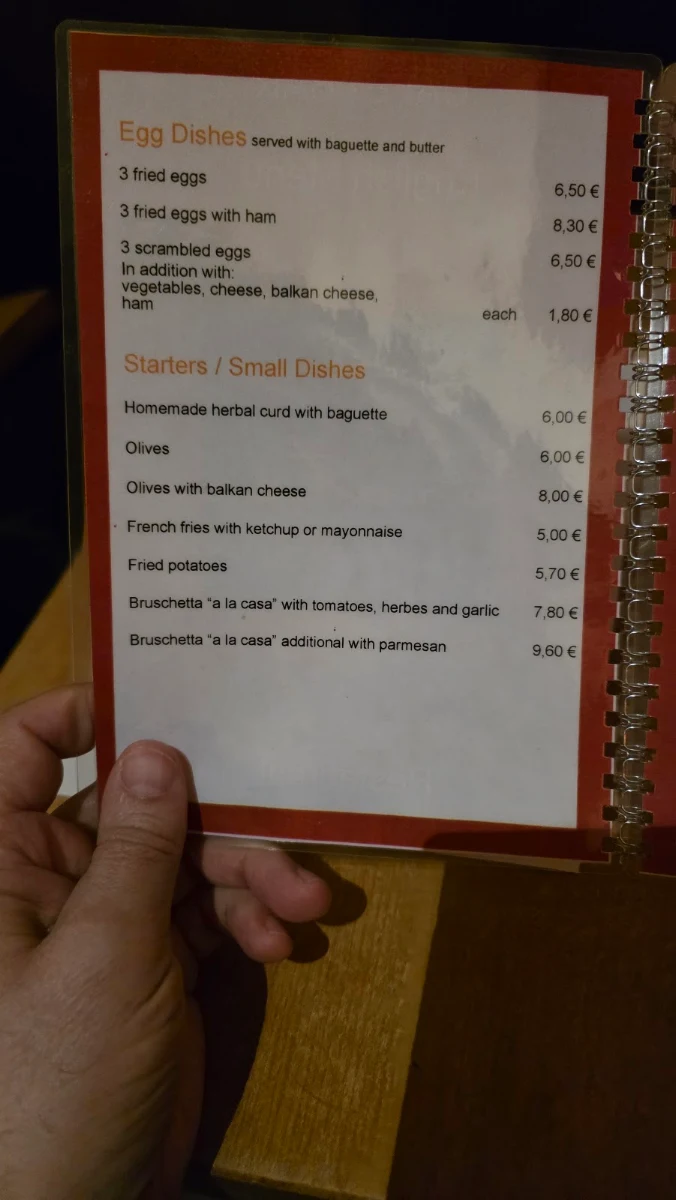 Egg Dishes served with baguette and butter
3 fried eggs 6,50 €
3 fried eggs with ham 8,30 €
3 scrambled eggs 6,50 €
In addition with:
vegetables, cheese, balkan cheese,
ham each 1,80 €
Starters / Small Dishes
Homemade herbal curd with baguette 6,00 €
Olives 6,00 €
Olives with balkan cheese 8,00 €
French fries with ketchup or mayonnaise 5,00 €
Fried potatoes 5,70 €
Bruschetta “a la casa” with tomatoes, herbes and garlic 7,80 €
Bruschetta “a la casa” additional with parmesan 9,60 €